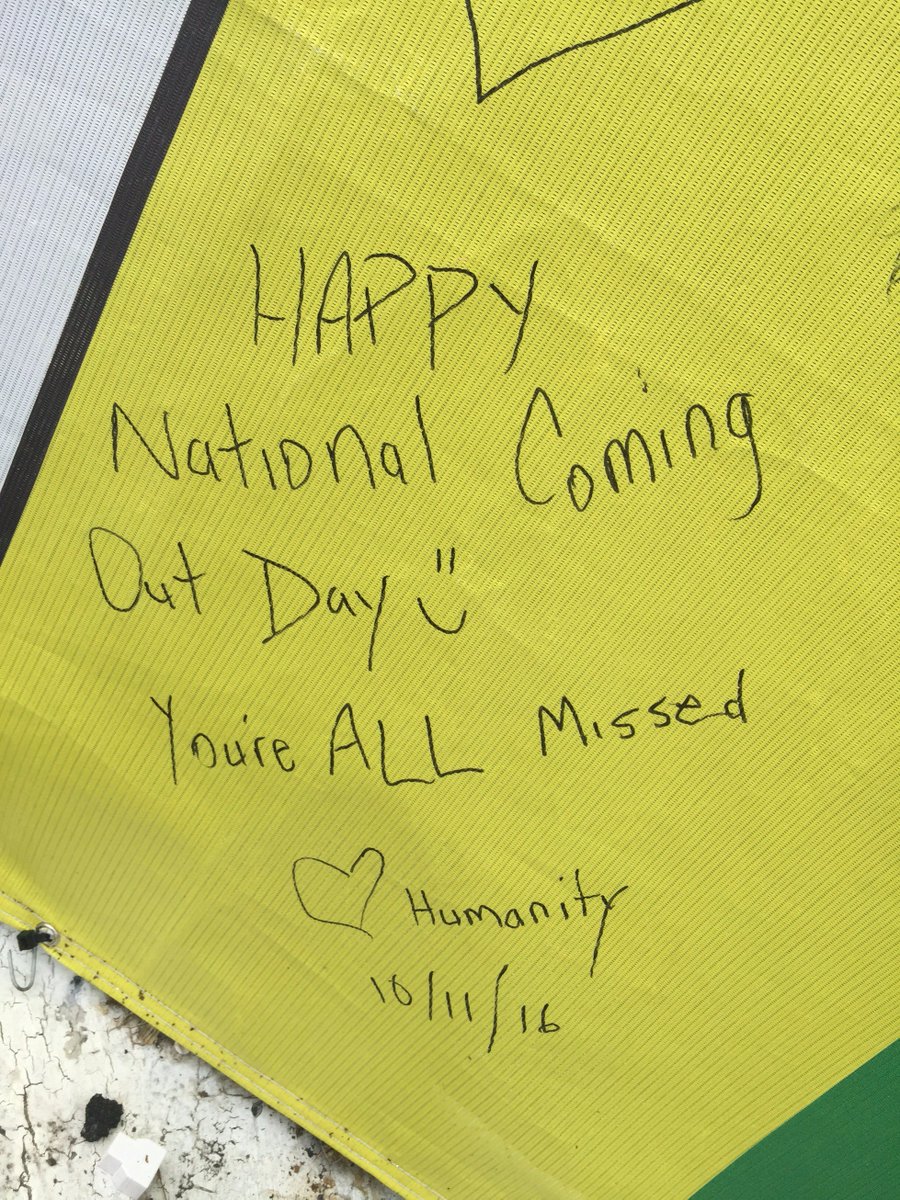 HAPPY
National Coming
Out Day
You're ALL Missed
Humanity
10/11/16